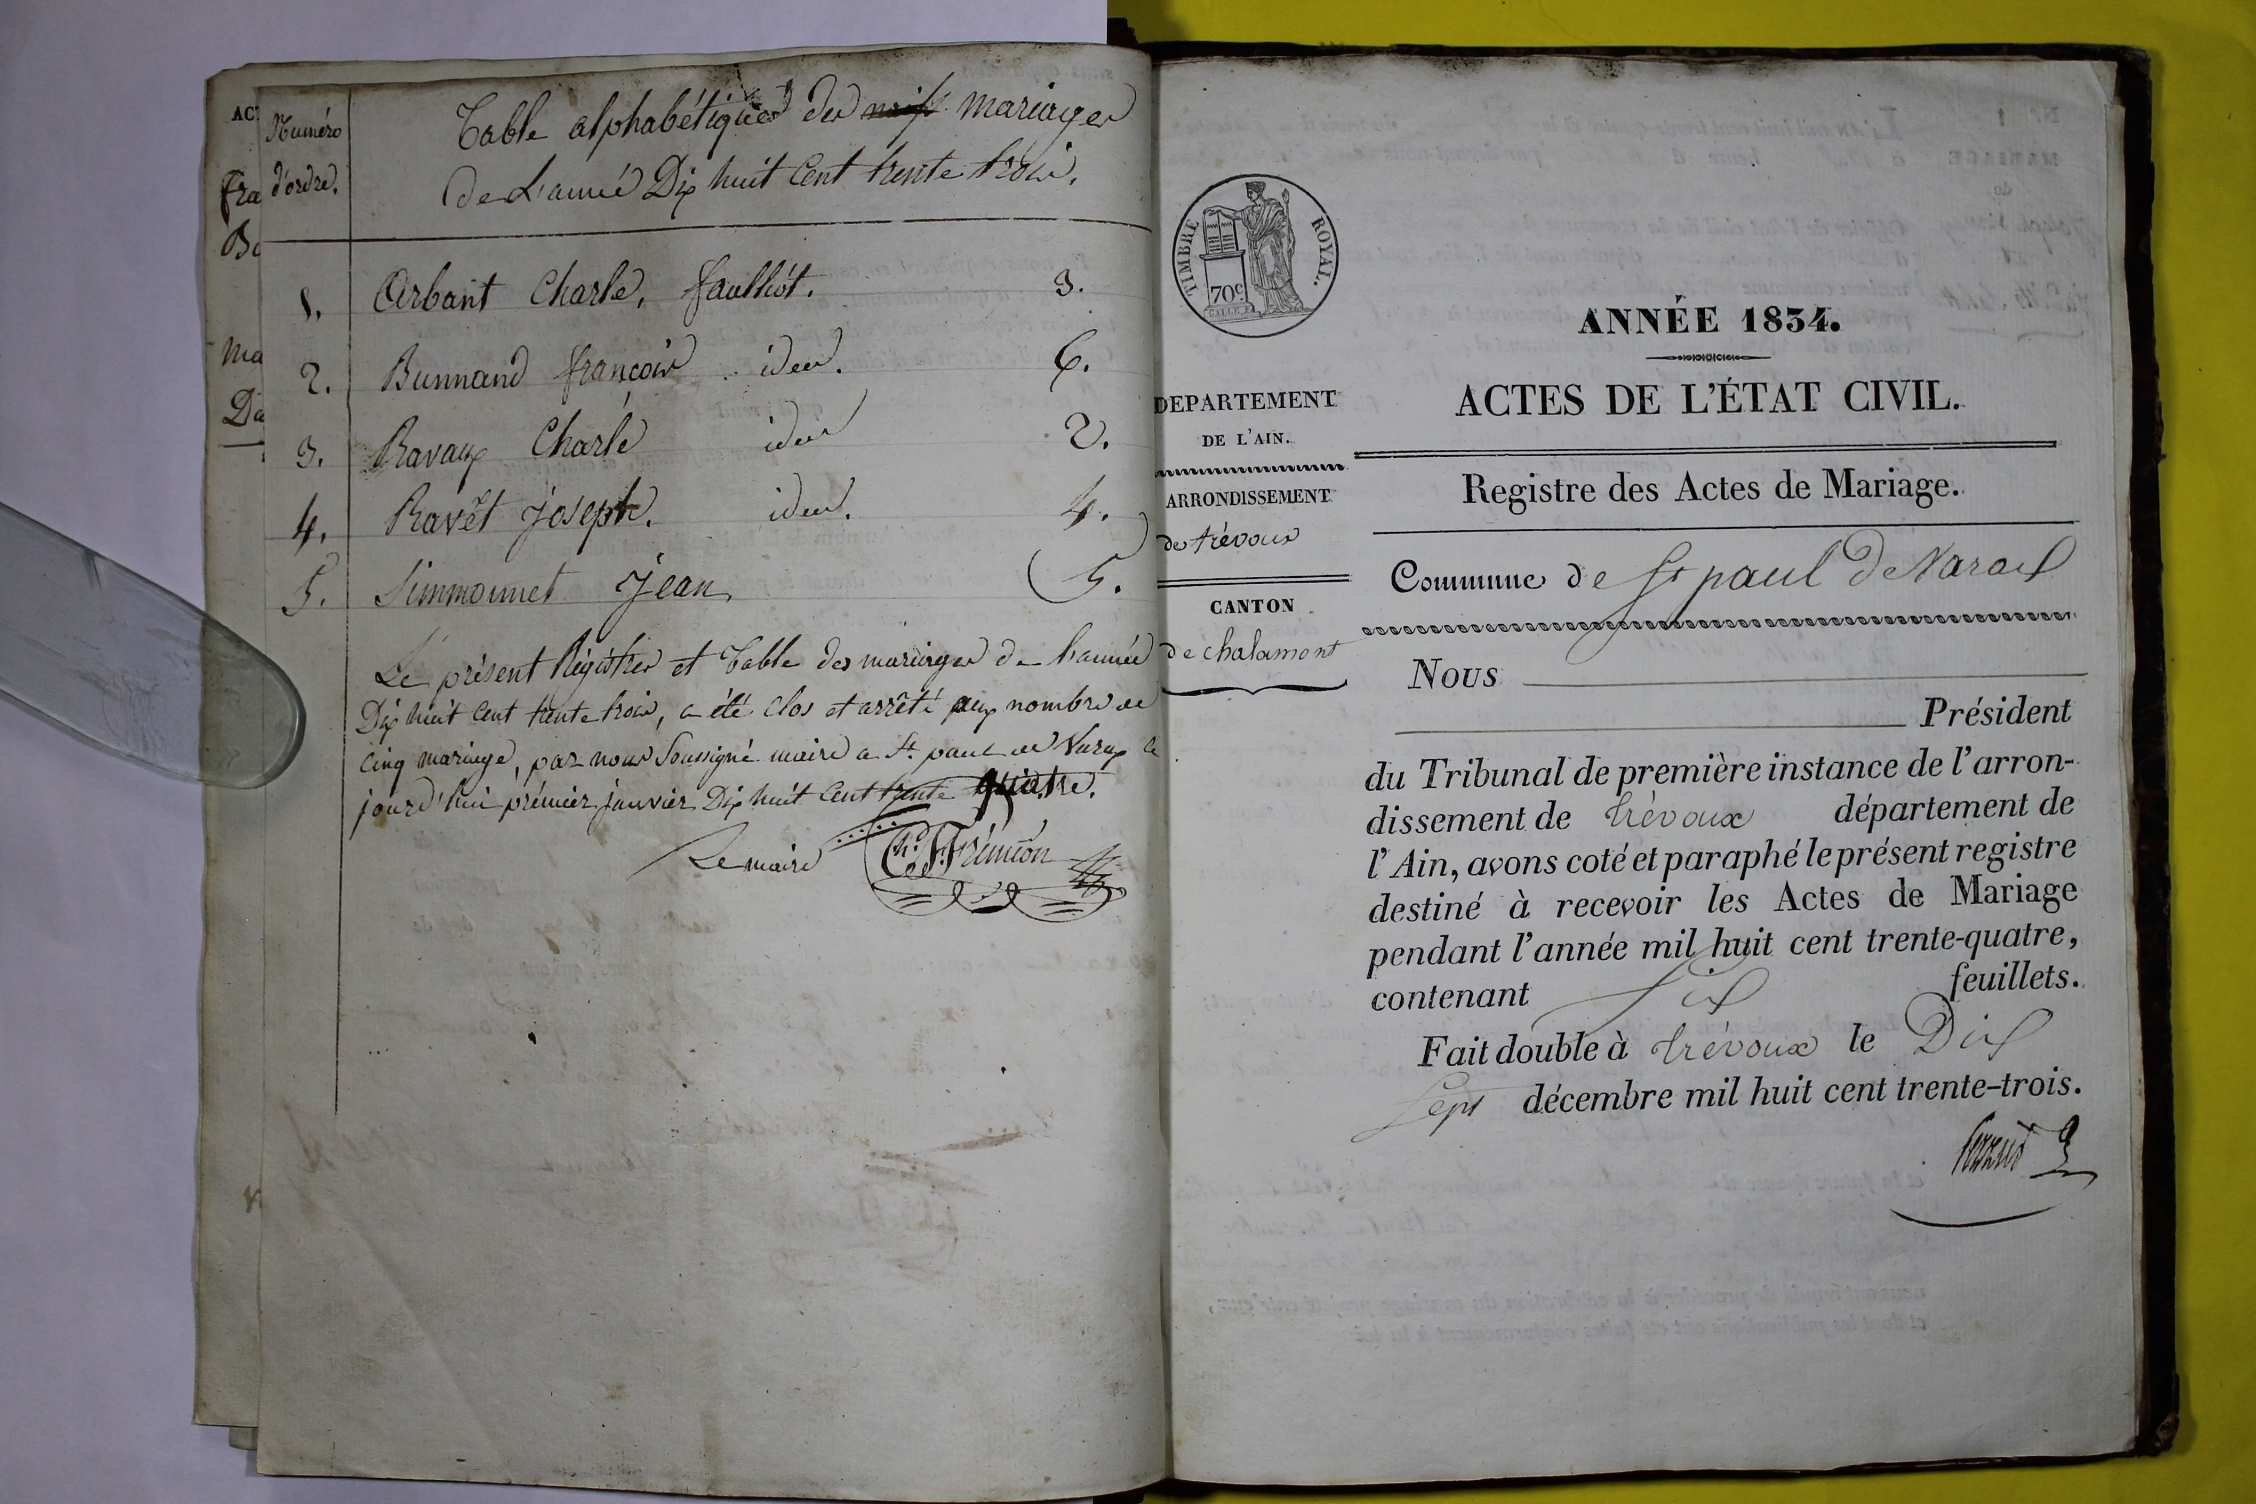 AC
fra
Bo
Ma
Da
Numéro
d'ordre.
Table alphabétiques des mariages
de L'année Dix huit Cent trente trois.
1. Arbant Charle, faulliot. 3.
2. Bunnand françois . idem. 6.
3. Ravaux Charle idem 2.
4. Ravet Joseph. idem. 4.
5. Simmonnet Jean, 5.
Le présent Régistres et Table des mariages de L'année
Dix huit Cent trente trois, a été Clos et arrêté aux nombre de
Cinq mariage, par nous Soussigné maire a St. paul de Varax le
jourd'hui prémier janvier Dix huit Cent trente quatre.
Le maire
TIMBRE ROYAL.
70c
DEPARTEMENT
DE L'AIN.
ARRONDISSEMENT
de trévoux
CANTON
de chalamont
ANNÉE 1834.
ACTES DE L'ÉTAT CIVIL.
Registre des Actes de Mariage.
Commune de St paul de Varax
Nous
Président
du Tribunal de première instance de l'arron-
dissement de trévoux département de
l'Ain, avons coté et paraphé le présent registre
destiné à recevoir les Actes de Mariage
pendant l'année mil huit cent trente-quatre,
contenant Six feuillets.
Fait double à trévoux le Dix
Sept décembre mil huit cent trente-trois.